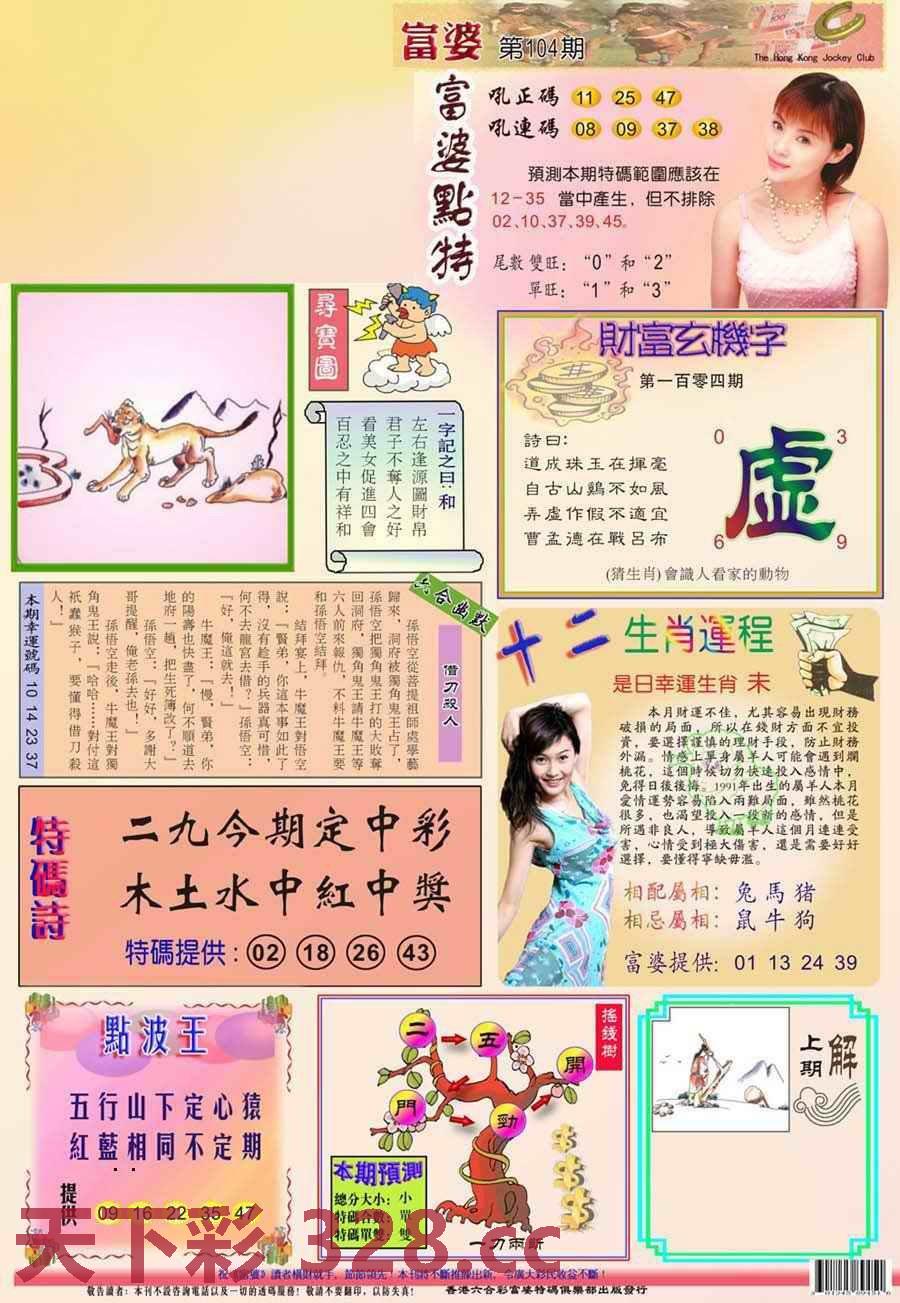 富婆 第104期
The Hong Kong Jockey Club
富婆點特
吼正碼 11 25 47
吼連碼 08 09 37 38
預測本期特碼範圍應該在
12-35 當中產生，但不排除
02、10、37、39、45。
尾數雙旺：“0”和“2”
單旺：“1”和“3”
尋寶圖
一字記之曰：和
左右逢源圖財帛
君子不奪人之好
看美女促進四會
百忍之中有祥和
財富玄機字
第一百零四期
詩曰：
道成珠玉在揮毫
自古山鷄不如風
弄虛作假不適宜
曹孟德在戰呂布
0 3
虛
6 9
(猜生肖)會識人看家的動物
六合幽默
借刀殺人
孫悟空從菩提祖師處學藝
歸來，洞府被獨角鬼王占了，
孫悟空把獨角鬼王打的大敗奪
回洞府，獨角鬼王請牛魔王等
六人前來報仇，不料牛魔王要
和孫悟空結拜。
結拜宴上，牛魔王對悟空
説：『賢弟，你這本事如此了
得，沒有趁手的兵器真可惜，
何不去龍宮去借？』孫悟空：
『好，俺這就去！』
牛魔王：『慢，賢弟，你
的陽壽也快盡了，何不順道去
地府一趟，把生死薄改了？』
孫悟空：『好好，多謝大
哥提醒，俺老孫去也！』
孫悟空走後，牛魔王對獨
角鬼王說：『哈哈……對付這
祇蠢猴子，要懂得借刀殺
人！』
本期幸運號碼 10 14 23 37
十二生肖運程
是日幸運生肖 未
本月財運不佳，尤其容易出現財務
破損的局面，所以在錢財方面不宜投
資，要選擇謹慎的理財手段，防止財務
外漏。情感上單身屬羊人可能會遇到爛
桃花，這個時候切勿快速投入感情中，
免得日後後悔。1991年出生的屬羊人本月
愛情運勢容易陷入兩難局面，雖然桃花
很多，也渴望投入一段新的感情，但是
所遇非良人，導致屬羊人這個月連連受
害，心情受到極大傷害，還是需要好好
選擇，要懂得寧缺毋濫。
相配屬相： 兔馬猪
相忌屬相： 鼠牛狗
富婆提供: 01 13 24 39
特碼詩
二九今期定中彩
木土水中紅中獎
特碼提供：02 18 26 43
點波王
五行山下定心猿
紅藍相同不定期
提供 09 16 22 35 47
搖錢樹
二 五 開
門 勁
本期預測
總分大小：小
特碼合數：單
特碼單雙：雙
一刀兩斷
上期解
天下彩 328.cc
祝《富婆》讀者橫財就手，節節領先！本刊將不斷推陳出新，令廣大彩民收益不斷！
敬告讀者：本刊不設咨詢電話以及一切的透碼服務！敬請不要翻印，以防失真！
香港六合彩富婆特碼俱樂部出版發行